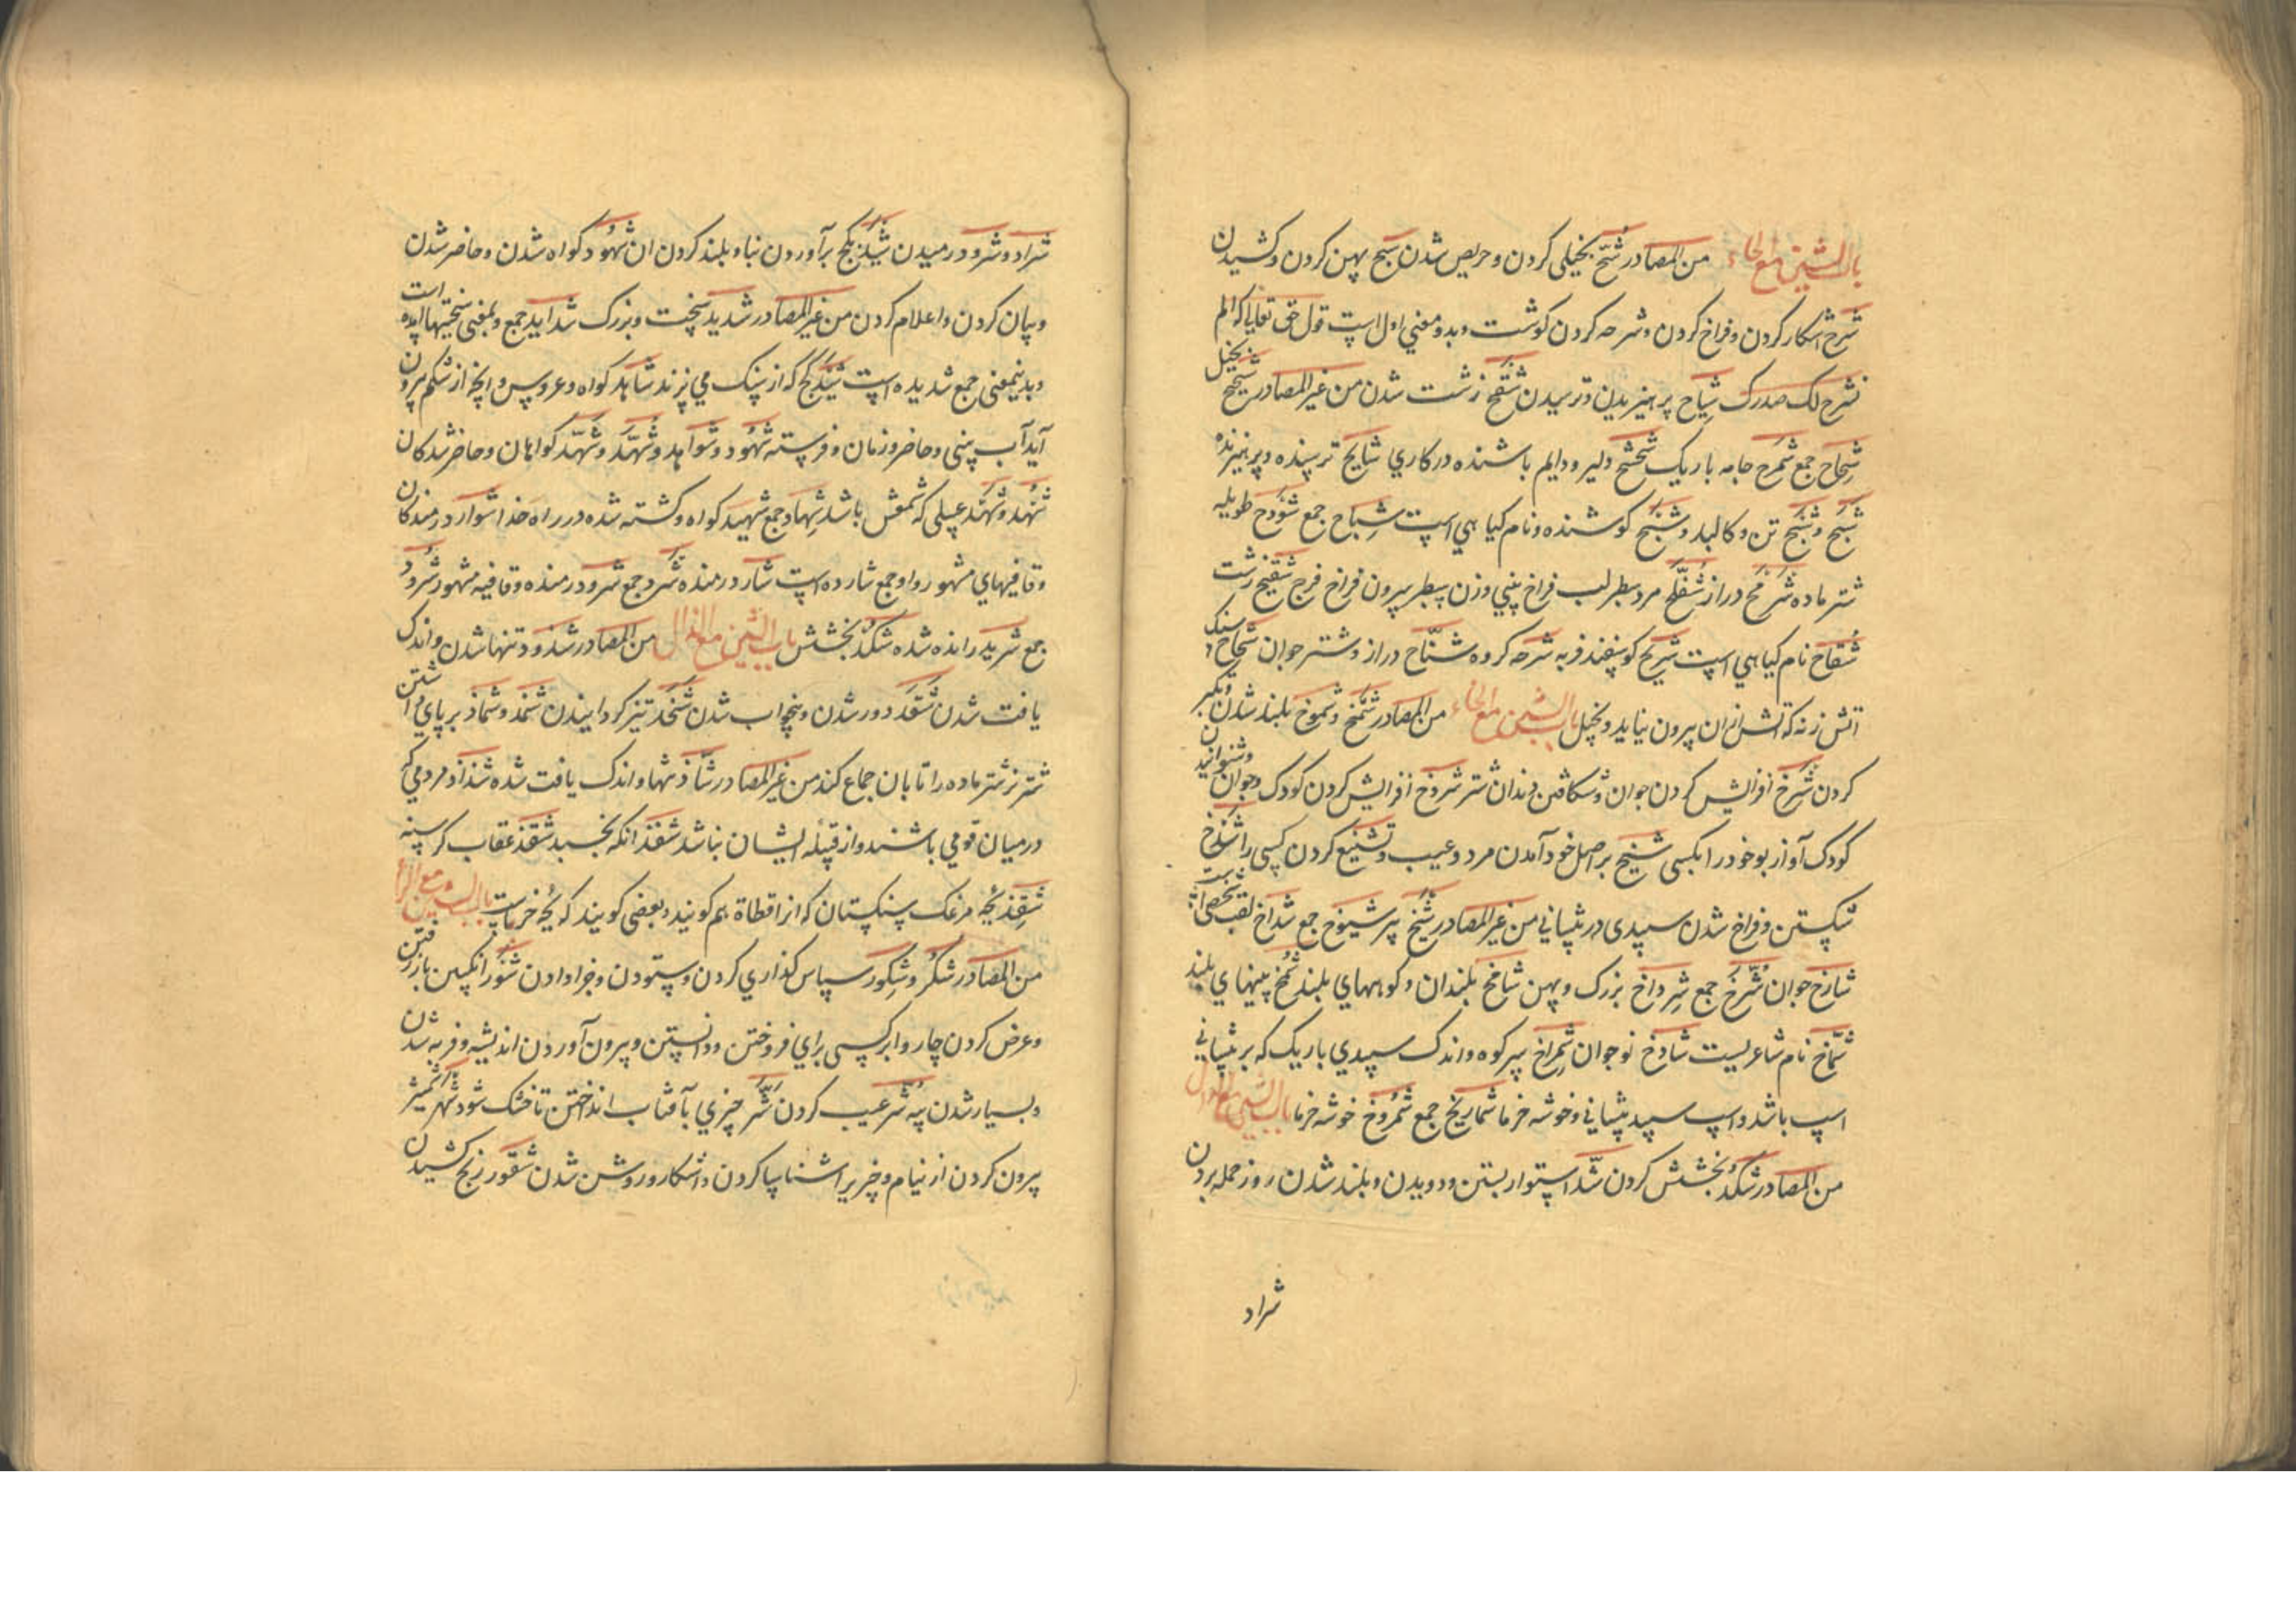 باب الشین مع الحاء من المصادر شُحّ بخیلی کردن و حریص شدن شبح پهن کردن و کشیدن
شرح اشکار کردن و فراخ کردن و شرحه کردن کوشت و بدو معنی اول است قول حق تعالی که الم
نشرح لک صدرک شِیاح پرهیزیدن و ترسیدن شَقح زشت شدن من غیر المصادر شحیح بخیل
شِحاح جمع شَمرح جامه باریک شحشح دلیر و دایم باشنده در کاری شایح ترسنده و پرهیزنده
شَبَح و شَبح تن و کالبد و شبح کوشنده و نام کیاهی است شِباح جمع شَودح طویله
شتر ماده شَرمَح دراز شُفلّح مرد سطبر لب فراخ بینی و زن سطبر بیرون فراخ فرج شقیح زشت
شُقاح نام کیاهی است شریح کوسفند فربه شرحه کرده شنّاح دراز و شتر جوان شحاح سنک
اتش زنه که آتش ازان بیرون نیاید و بخیل باب الشین مع الخاء من المصادر شَمخ و شموخ بلند شدن و تکبر
کردن شَرخ افزایش کردن جوان و شکافتن دندان شتر شروخ افزایش کردن کودک و جوان
کودک آواز بوخود را بکسی شیخ بر اصل خود آمدن مرد و عیب و تشنیع کردن کسی را شدخ
شکستن و فراخ شدن سپیدی در پیشانی من غیر المصادر شیخ پیر شیوخ جمع شداخ لقب شخصی است
شارخ جوان شُرّخ جمع شِرداخ بزرک و پهن شامخ بلندان و کوههای بلند شُمّخ بینیهای بلند
شمّاخ نام شاعریست شادخ نوجوان شِمراخ سر کوه و اندک سپیدی باریک که بر پیشانی
اسپ باشد و اسپ سپید پیشانی و خوشه خرما شماریخ جمع شُمروخ خوشه خرما باب الشین مع الدال
من المصادر شکد بخشش کردن شَدّ استوار بستن و دویدن و بلند شدن روز حمله بردن
شراد
شراد و شرود رمیدن شَید بکج برآوردن بنا و بلند کردن ان شُهود کواه شدن و حاضر شدن
و بیان کردن و اعلام کردن من غیر المصادر شدید سخت و بزرک شداید جمع و بمعنی سختیها امده است
و بدینمعنی جمع شدیده است شید کج که از سنک می پزند شاهد کواه و عروس و انچه از شکم بیرون
آید آب بینی و حاضر و زمان و فرسته شهود و شواهد و شُهّد و شُهّد کواهان و حاضر شدکان
شُهد و شَهد عسلی که شمعش باشد شِهاد جمع شهید کواه و کشته شده در راه خدا شوارد رمندکان
و قافیهای مشهور و او جمع شارده است شارد رمنده شَرد جمع شرود رمنده و قافیه مشهور شُرُد
جمع شرید رانده شده شکد بخشش باب الشین مع الذال من المصادر شذوذ تنها شدن و اندک
یافت شدن شَقَذ دور شدن و بیخواب شدن شَحذ تیز کردانیدن شَمذ و شِماذ بر پای داشتن
شتر نر شتر ماده را تا بان جماع کند من غیر المصادر شاذ تنها و اندک یافت شده شذاذ مردمی که
در میان قومی باشند و از قبیله ایشان نباشد شقذ انکه نخسبد شقذ عقاب کرسنه
شَقِذ بچه مرغک سنکستان که انرا قطاة هم کویند و بعضی کویند که بچه حرباست باب الشین مع الرا
من المصادر شُکر و شکور سپاس کذاری کردن و ستودن و جزا دادن شَور انکبین بازرفتن
و عرض کردن چاروا بر کسی برای فروختن و دانستن و بیرون آوردن اندیشه و فربه شدن
و بسیار شدن پیه شَر عیب کردن شَرّ چیزی بآفتاب انداختن تا خشک شود شَهر شمشیر
بیرون کردن از نیام و چیزیرا شناسا کردن و اشکار و روشن شدن شقور رنج کشیدن